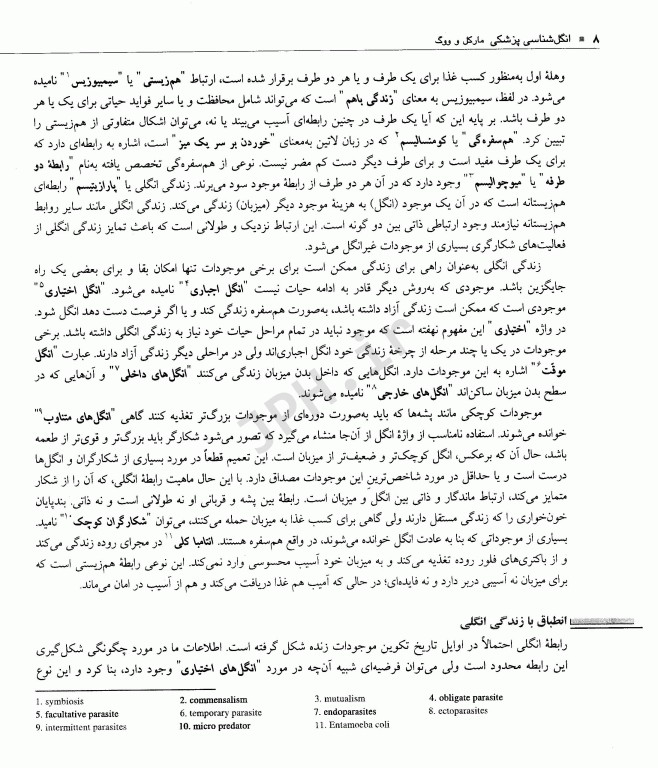 ۸ ■ انگل‌شناسی پزشکی مارکل و ووگ
وهلهٔ اول به‌منظور کسب غذا برای یک طرف و یا هر دو طرف برقرار شده است، ارتباط "هم‌زیستی" یا "سیمبیوزیس۱" نامیده
می‌شود. در لفظ، سیمبیوزیس به معنای "زندگی باهم" است که می‌تواند شامل محافظت و یا سایر فواید حیاتی برای یک یا هر
دو طرف باشد. بر پایه این که آیا یک طرف در چنین رابطه‌ای آسیب می‌بیند یا نه، می‌توان اشکال متفاوتی از هم‌زیستی را
تبیین کرد. "هم‌سفره‌گی" یا "کومنسالیسم۲" که در زبان لاتین به‌معنای "خوردن بر سر یک میز" است، اشاره به رابطه‌ای دارد که
برای یک طرف مفید است و برای طرف دیگر دست کم مضر نیست. نوعی از هم‌سفره‌گی تخصص یافته به‌نام "رابطهٔ دو
طرفه" یا "میوچوالیسم۳" وجود دارد که در آن هر دو طرف از رابطهٔ موجود سود می‌برند. زندگی انگلی یا "پارازیتیسم" رابطه‌ای
هم‌زیستانه است که در آن یک موجود (انگل) به هزینهٔ موجود دیگر (میزبان) زندگی می‌کند. زندگی انگلی مانند سایر روابط
هم‌زیستانه نیازمند وجود ارتباطی ذاتی بین دو گونه است. این ارتباط نزدیک و طولانی است که باعث تمایز زندگی انگلی از
فعالیت‌های شکارگری بسیاری از موجودات غیرانگل می‌شود.
زندگی انگلی به‌عنوان راهی برای زندگی ممکن است برای برخی موجودات تنها امکان بقا و برای بعضی یک راه
جایگزین باشد. موجودی که به‌روش دیگر قادر به ادامه حیات نیست "انگل اجباری۴" نامیده می‌شود. "انگل اختیاری۵"
موجودی است که ممکن است زندگی آزاد داشته باشد، به‌صورت هم‌سفره زندگی کند و یا اگر فرصت دست دهد انگل شود.
در واژه "اختیاری" این مفهوم نهفته است که موجود نباید در تمام مراحل حیات خود نیاز به زندگی انگلی داشته باشد. برخی
موجودات در یک یا چند مرحله از چرخهٔ زندگی خود انگل اجباری‌اند ولی در مراحلی دیگر زندگی آزاد دارند. عبارت "انگل
موقت۶" اشاره به این موجودات دارد. انگل‌هایی که داخل بدن میزبان زندگی می‌کنند "انگل‌های داخلی۷" و آن‌هایی که در
سطح بدن میزبان ساکن‌اند "انگل‌های خارجی۸" نامیده می‌شوند.
موجودات کوچکی مانند پشه‌ها که باید به‌صورت دوره‌ای از موجودات بزرگ‌تر تغذیه کنند گاهی "انگل‌های متناوب۹"
خوانده می‌شوند. استفاده نامناسب از واژهٔ انگل از آن‌جا منشاء می‌گیرد که تصور می‌شود شکارگر باید بزرگ‌تر و قوی‌تر از طعمه
باشد، حال آن که برعکس، انگل کوچک‌تر و ضعیف‌تر از میزبان است. این تعمیم قطعاً در مورد بسیاری از شکارگران و انگل‌ها
درست است و یا حداقل در مورد شاخص‌ترین این موجودات مصداق دارد. با این حال ماهیت رابطهٔ انگلی، که آن را از شکار
متمایز می‌کند، ارتباط ماندگار و ذاتی بین انگل و میزبان است. رابطهٔ بین پشه و قربانی او نه طولانی است و نه ذاتی. بندپایان
خون‌خواری را که زندگی مستقل دارند ولی گاهی برای کسب غذا به میزبان حمله می‌کنند، می‌توان "شکارگران کوچک۱۰" نامید.
بسیاری از موجوداتی که بنا به عادت انگل خوانده می‌شوند، در واقع هم‌سفره هستند. انتامبا کلی۱۱ در مجرای روده زندگی می‌کند
و از باکتری‌های فلور روده تغذیه می‌کند و به میزبان خود آسیب محسوسی وارد نمی‌کند. این نوعی رابطهٔ هم‌زیستی است که
برای میزبان نه آسیبی دربر دارد و نه فایده‌ای؛ در حالی که آمیب هم غذا دریافت می‌کند و هم از آسیب در امان می‌ماند.
انطباق با زندگی انگلی
رابطهٔ انگلی احتمالاً در اوایل تاریخ تکوین موجودات زنده شکل گرفته است. اطلاعات ما در مورد چگونگی شکل‌گیری
این رابطه محدود است ولی می‌توان فرضیه‌ای شبیه آن‌چه در مورد "انگل‌های اختیاری" وجود دارد، بنا کرد و این نوع
1. symbiosis 2. commensalism 3. mutualism 4. obligate parasite
5. facultative parasite 6. temporary parasite 7. endoparasites 8. ectoparasites
9. intermittent parasites 10. micro predator 11. Entamoeba coli
JPH.ir